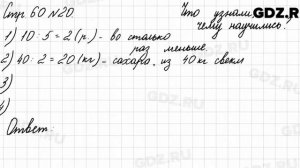 Стр. 60 №20.
Что узнали,
чему научились?
GDZ.RU
1) 10 · 5 = 2 (р.) - во столько
раз меньше.
2) 40 · 2 = 20 (кг) - сахара из 40 кг свекл
3)
4)
Ответ: